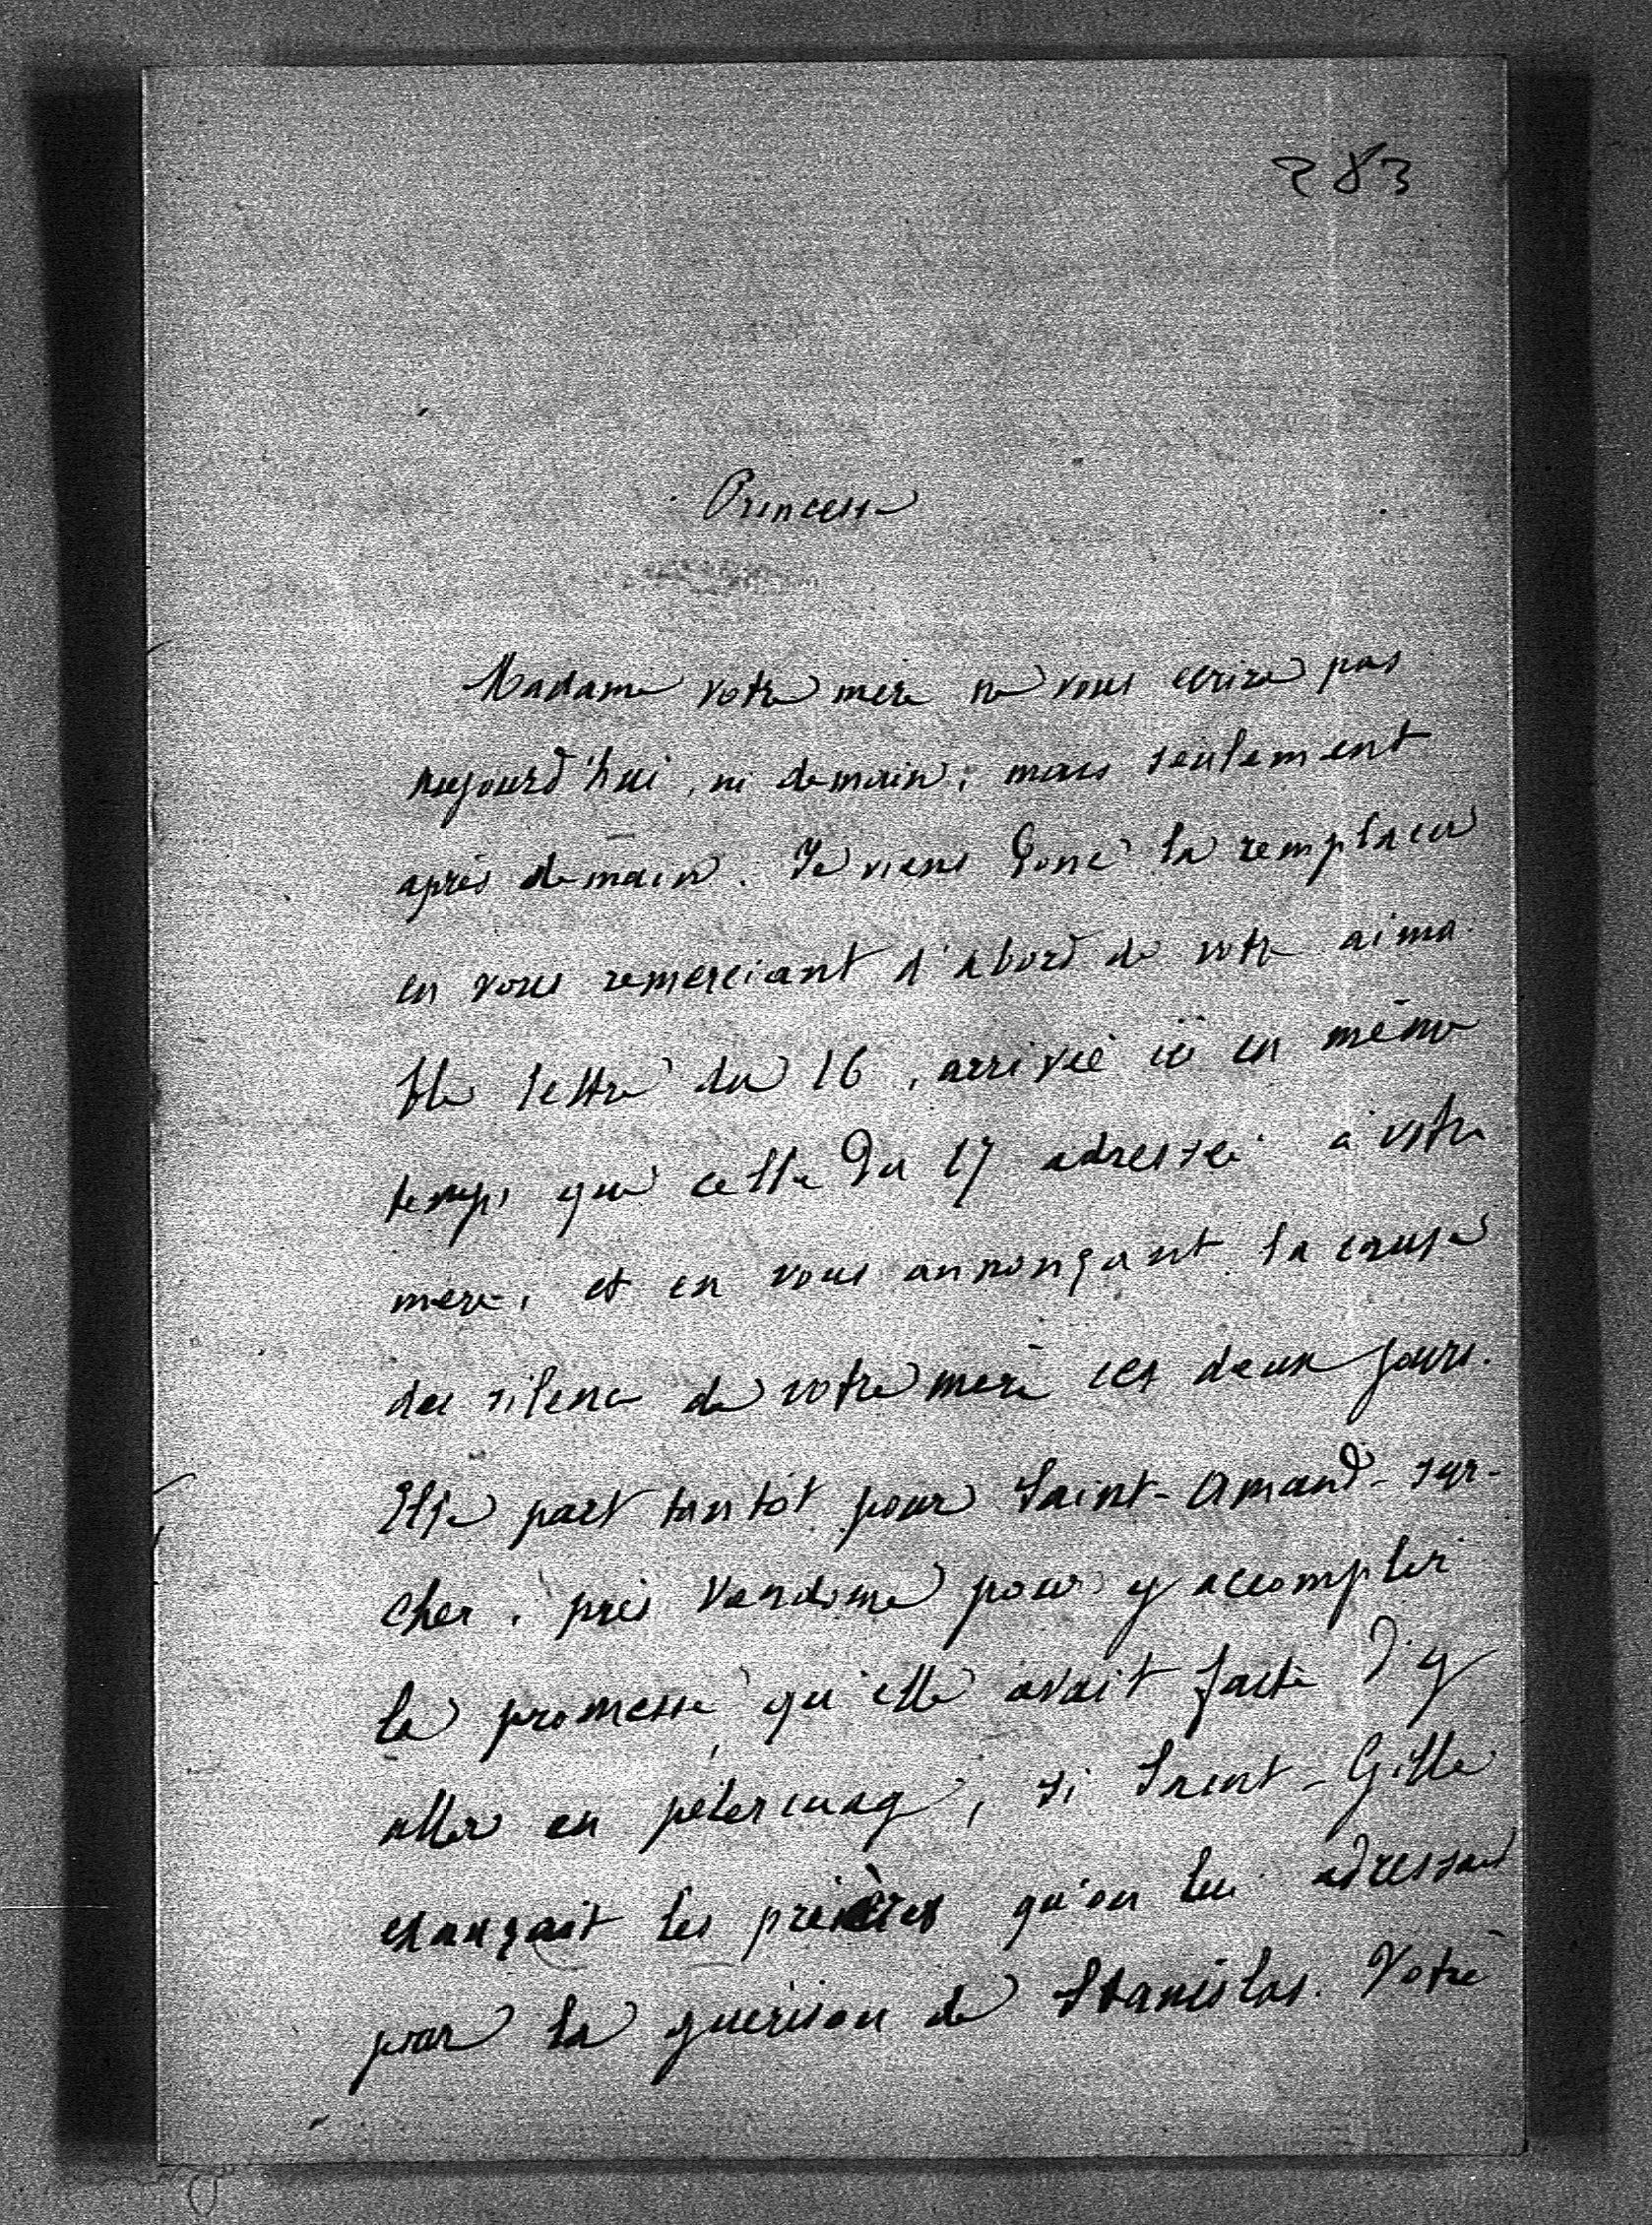 283
Princesse
Madame votre mère ne vous écrira pas
aujourd'hui, ni demain; mais seulement
après demain. Je viens donc la remplacer
en vous remerciant d'abord de votre aima-
ble lettre du 16, arrivée ici en même
temps que celle du 17 adressée à votre
mère, et en vous annonçant la cause
du silence de votre mère ces deux jours.
Elle part tantôt pour Saint-Amand-sur-
Cher, près Vendôme pour y accomplir
la promesse qu'elle avait faite d'y
aller en pélerinage, si Saint-Gille
exauçait les prières qu'on lui adressait
pour la guérison de Stanislas. Votre